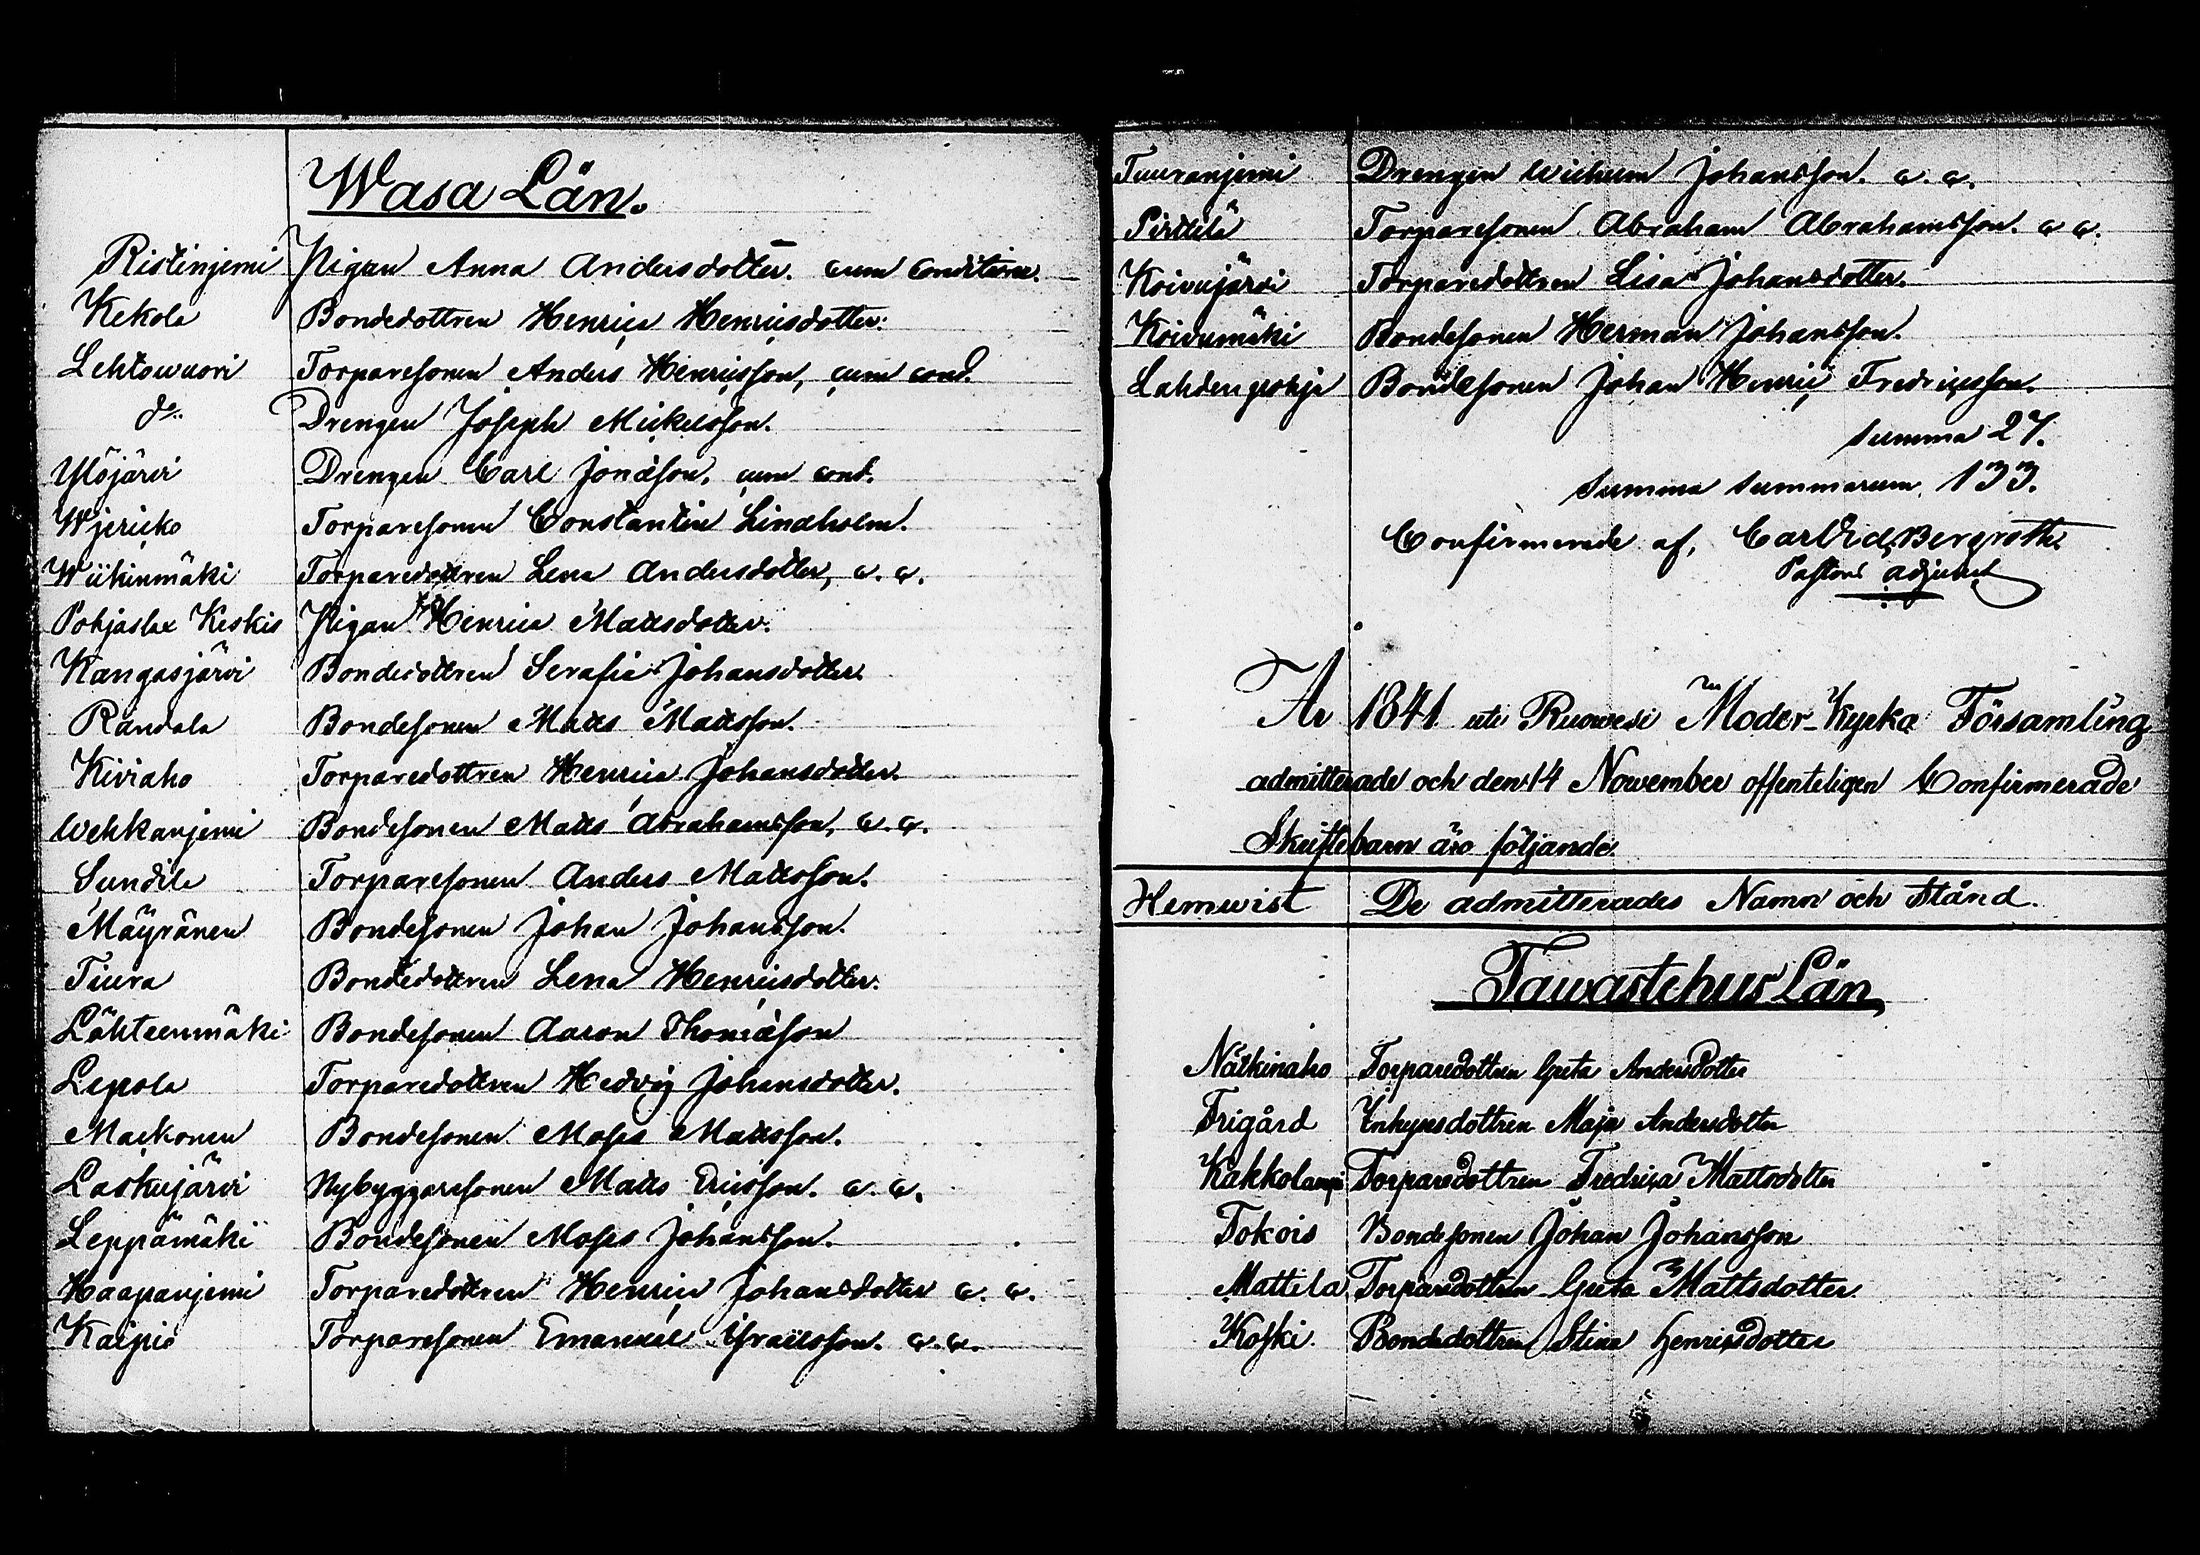 Wasa Län.
Ristinjemi Pigan Anna Andersdotter. cum conditione.
Kekola Bondedottren Henrica Henricsdotter.
Lehtowuori Torparesonen Anders Henricsson, cum cond.
d:o Drengen Joseph Mickelsson.
Ylöjärvi Drengen Carl Jonasson. cum cond.
Wjericko Torparesonen Constantin Lindholm.
Wiikinmäki Torparedottren Lena Andersdotter, c. c.
Pohjaslax Keskis Pigan Henrica Mattsdotter.
Kangasjärvi Bondedottren Serafia Johansdotter.
Randala Bondesonen Matts Mattsson.
Kiviaho Torparedottren Henrica Johansdotter.
Wehkanjemi Bondesonen Matts Abrahamsson, c. c.
Sundila Torparesonen Anders Mattsson.
Mäyränen Bondesonen Johan Johansson.
Tiura Bondedottren Lena Henricsdotter.
Lähteenmäki Bondesonen Aaron Thomasson
Lepola Torparedottren Hedvig Johansdotter.
Mackonen Bondesonen Moses Mattsson.
Laskujärvi Nybyggaresonen Matts Ericsson. c. c.
Leppämäki Bondesonen Moses Johansson.
Haapanjemi Torparedottren Henrica Johansdotter c. c.
Kaipio Torparesonen Emanuel Israelsson. c. c.
Tuuranjemi Drengen Wilhelm Johansson. c. c.
Pirttilä Torparesonen Abraham Abrahamsson. c c.
Koivujärvi Torparedottren Lisa Johansdotter.
Koivumäki Bondesonen Herman Johansson.
Lahdenpohja Bondesonen Johan Henric Fredricsson.
Summa 27.
Summa summarum 133.
Confirmerade af, Carl Vid. Bergroth
Pastors adjunct
År 1841 uti Ruowesi Moder-Kyrka Församling
admitterade och den 14 Nowember offenteligen Confirmerade
Skriftebarn äro följande.
Hemwist De admitterades Namn och Stånd.
Tawastehus Län
Nätkinaho Torparedottren Greta Andersdotter
Frigård Enkjesdottren Maja Andersdotter
Kakkolampi Torparedottren Fredrica Mattsdotter
Tokois Bondesonen Johan Johansson
Mattila Torparedottren Greta Mattsdotter
Koski. Bondedottren Stina Henricsdotter